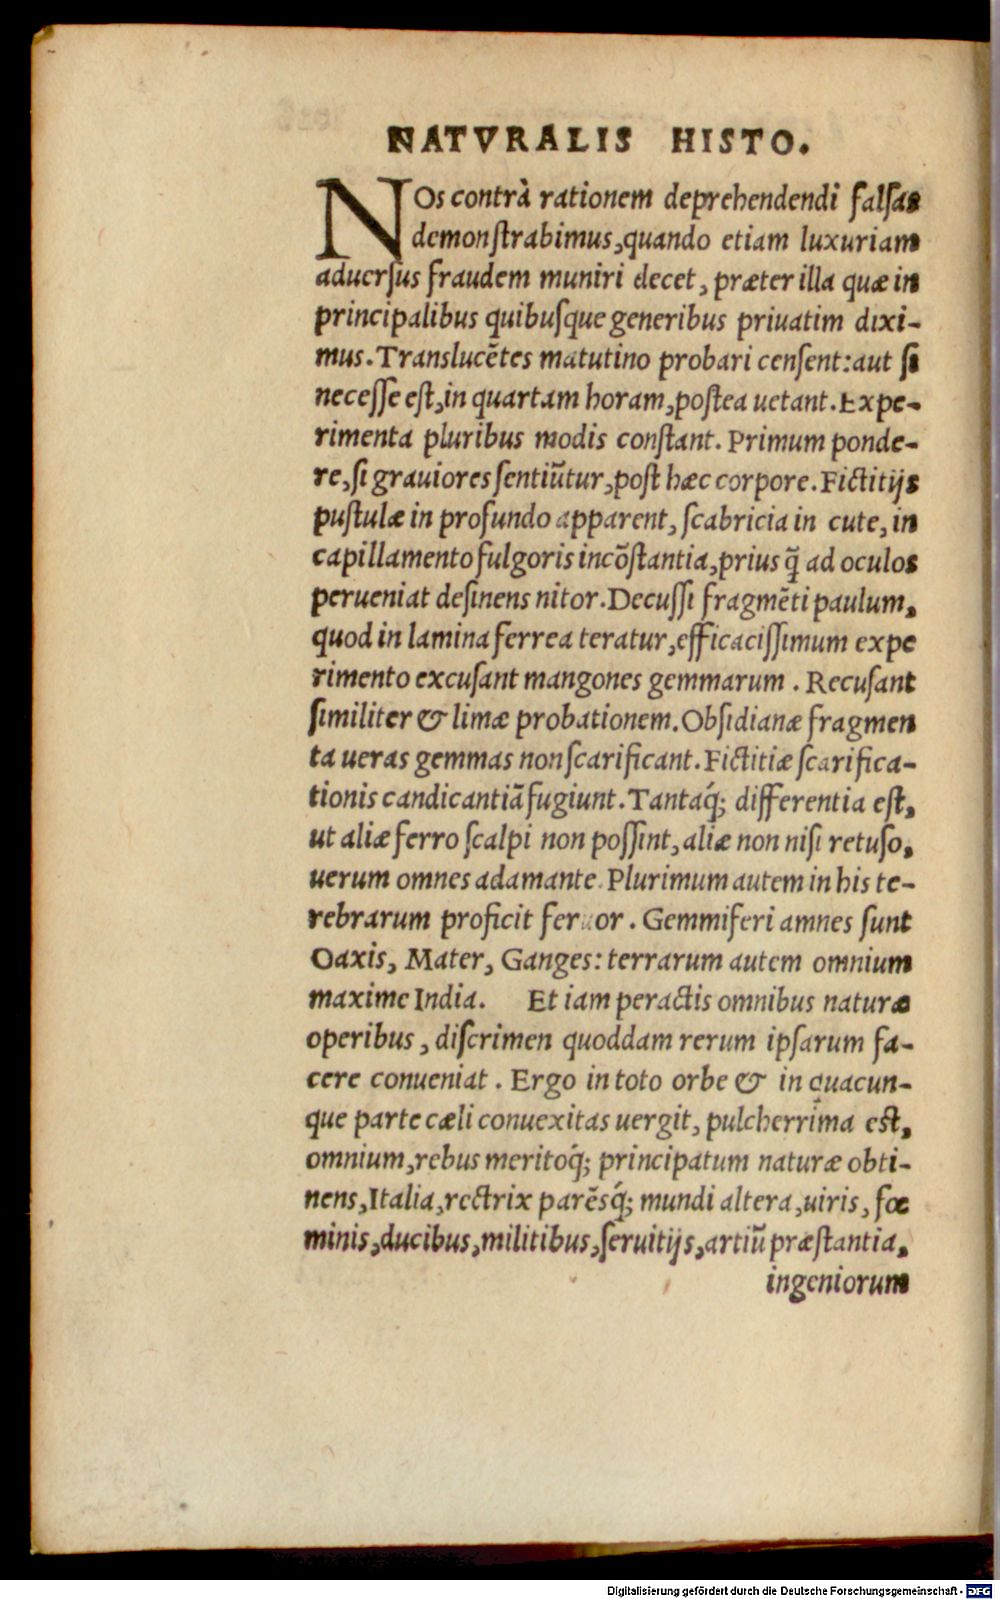 NATVRALIS HISTO.
NOs contrà rationem deprehendendi falſas
demonſtrabimus, quando etiam luxuriam
aduerſus fraudem muniri decet, præter illa quæ in
principalibus quibuſque generibus priuatim dixi-
mus. Translucẽtes matutino probari cenſent: aut ſi
neceſſe eſt, in quartam horam, poſtea uetant. Expe-
rimenta pluribus modis conſtant. Primum ponde-
re, ſi grauiores ſentiũtur, poſt hæc corpore. Fictitijs
puſtulæ in profundo apparent, ſcabricia in cute, in
capillamento fulgoris incõſtantia, prius q̃ ad oculos
perueniat deſinens nitor. Decuſſi fragmẽti paulum,
quod in lamina ferrea teratur, efficaciſſimum expe
rimento excuſant mangones gemmarum. Recuſant
ſimiliter & limæ probationem. Obſidianæ fragmen
ta ueras gemmas non ſcarificant. Fictitiæ ſcarifica-
tionis candicantiã fugiunt. Tantaq́; differentia eſt,
ut aliæ ferro ſcalpi non poſſint, aliæ non niſi retuſo,
uerum omnes adamante. Plurimum autem in his te-
rebrarum proficit feruor. Gemmiferi amnes ſunt
Oaxis, Mater, Ganges: terrarum autem omnium
maxime India. Et iam peractis omnibus naturæ
operibus, diſcrimen quoddam rerum ipſarum fa-
cere conueniat. Ergo in toto orbe & in quacun-
que parte cæli conuexitas uergit, pulcherrima eſt,
omnium, rebus meritoq́; principatum naturæ obti-
nens, Italia, rectrix parẽsq́; mundi altera, uiris, fœ
minis, ducibus, militibus, ſeruitijs, artiũ præſtantia,
ingeniorum
Digitalisierung gefördert durch die Deutsche Forschungsgemeinschaft - DFG